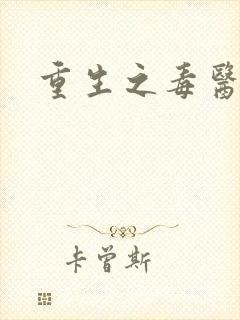 重生之毒醫
卡曾斯